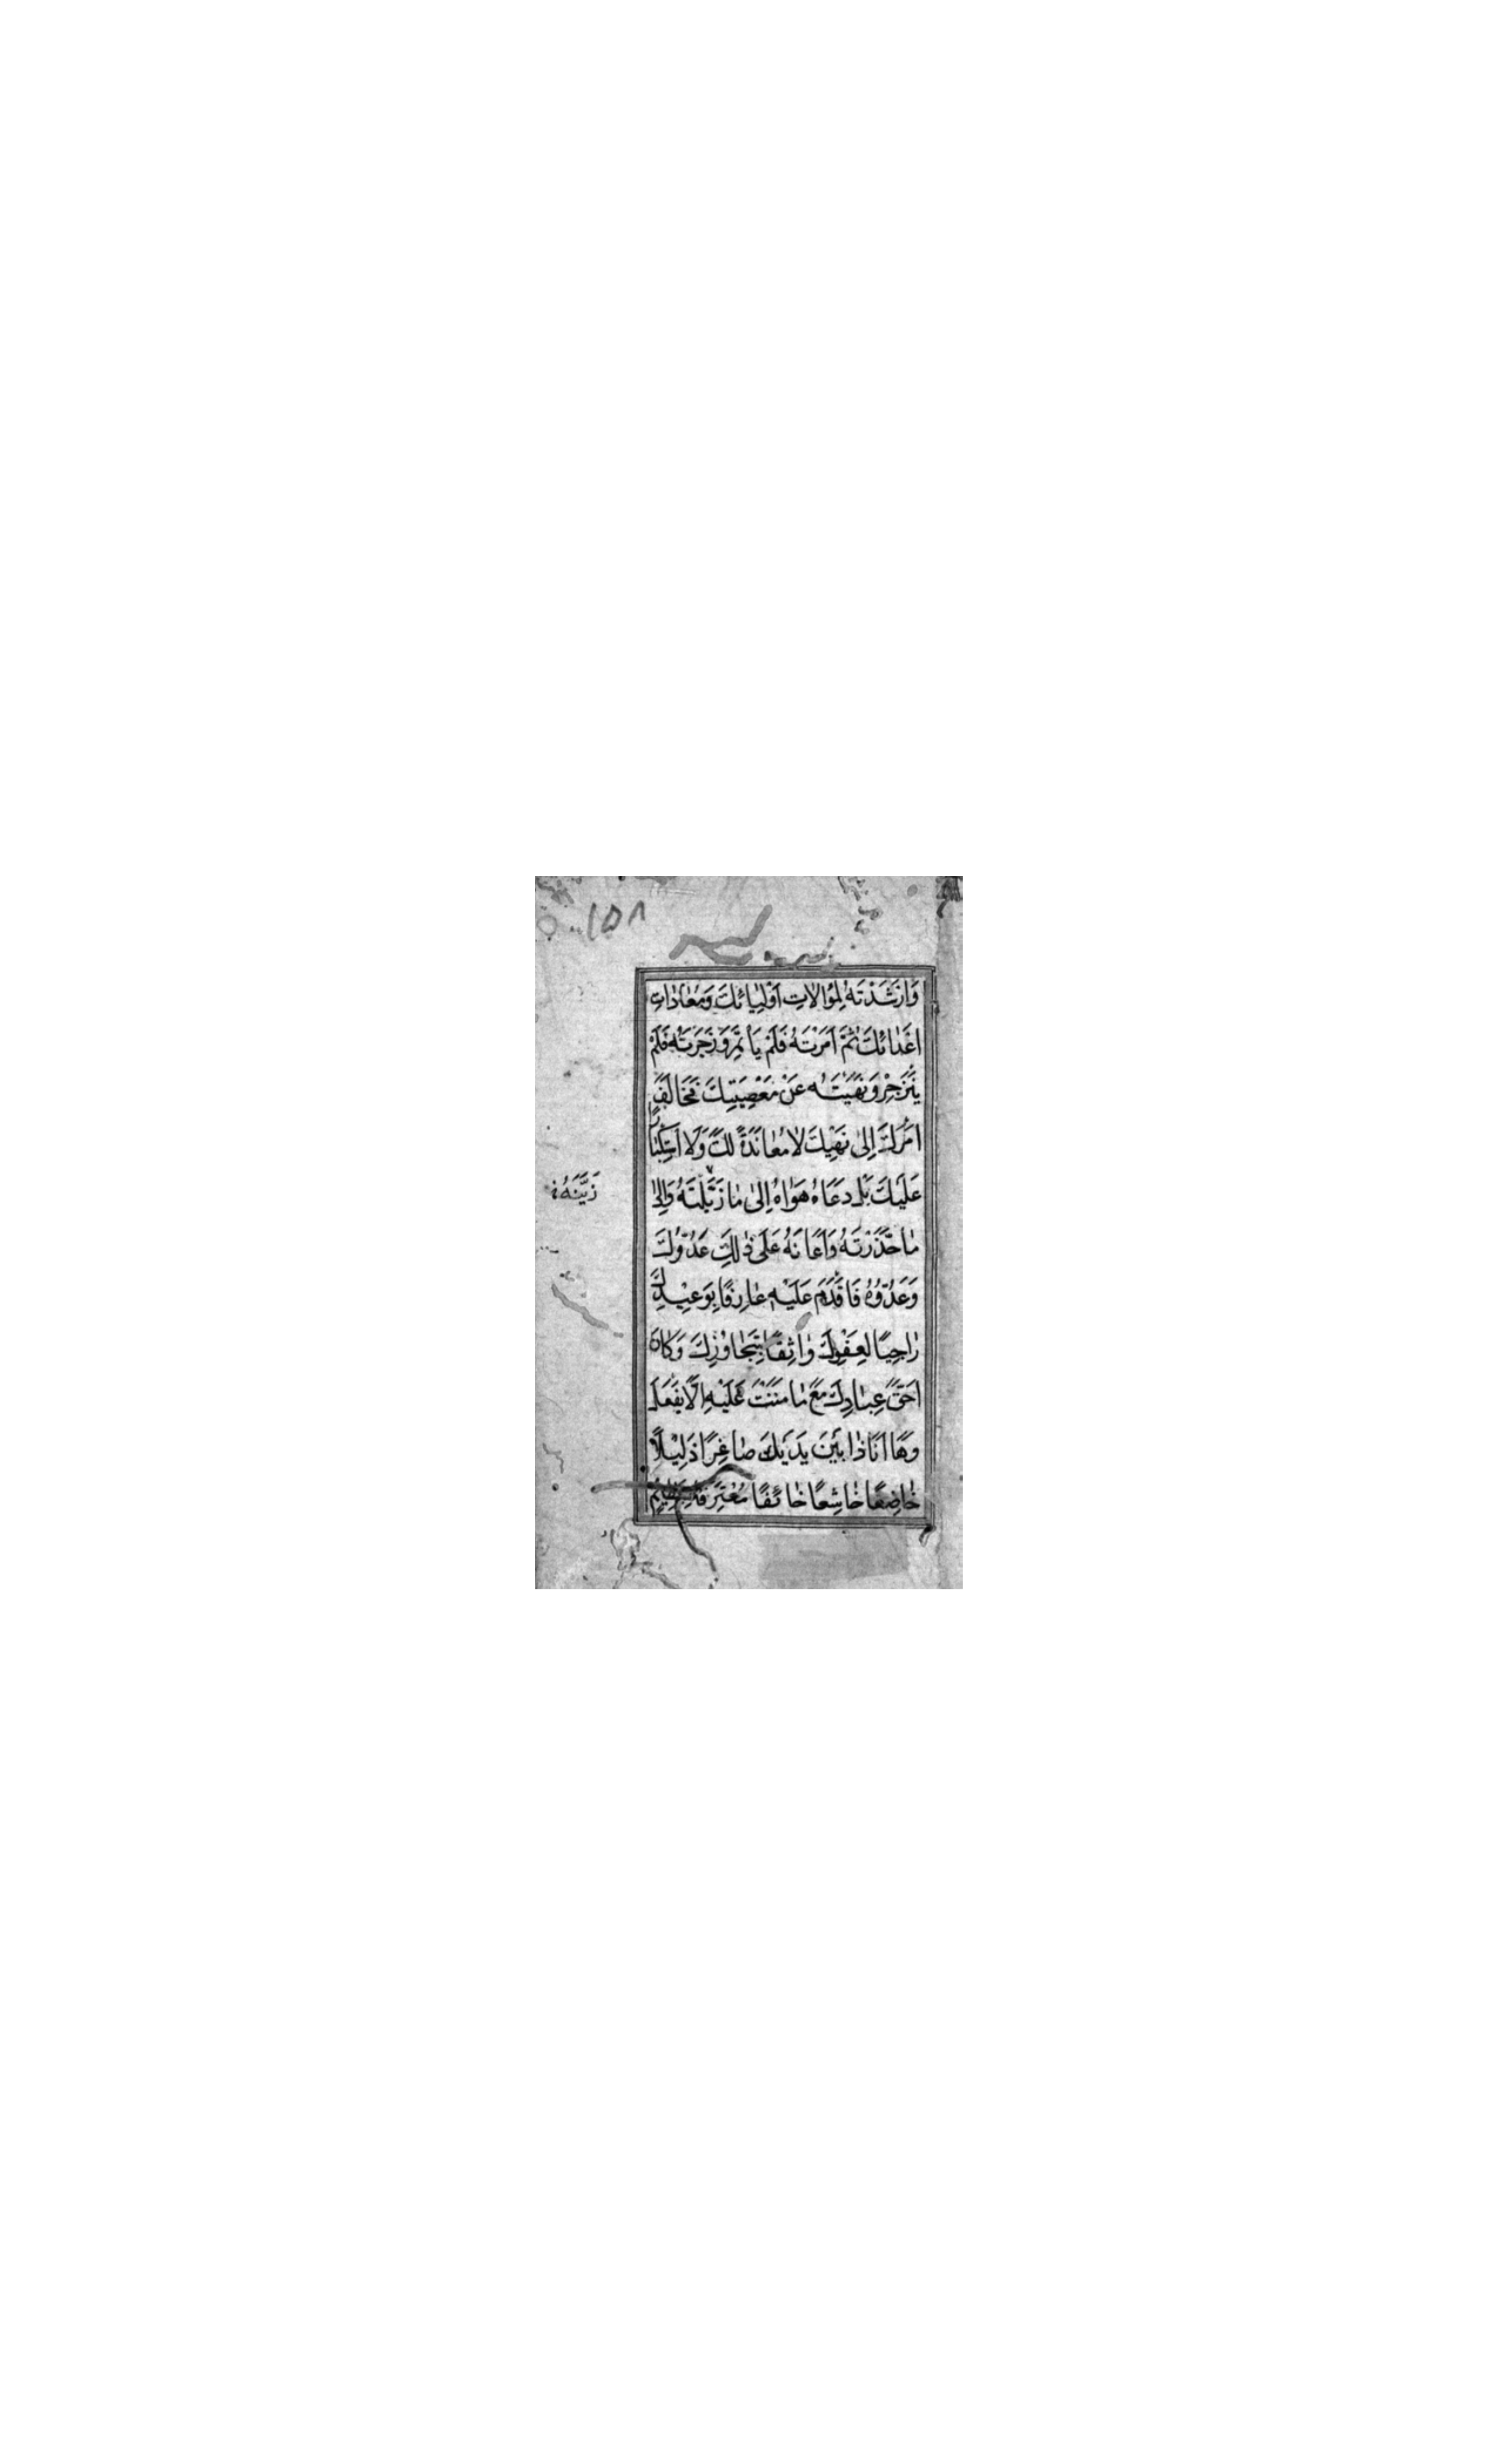 ١٥٨
وَاَرْشَدْتَهُ لِمُوٰالاتِ اَوْلِيٰائِكَ وَمُعٰادٰاتِ
اَعْدٰائِكَ ثُمَّ اَمَرْتَهُ فَلَمْ يَأْتَمِرْ وَزَجَرْتَهُ فَلَمْ
يَنْزَجِرْ وَنَهَيْتَهُ عَنْ مَعْصِيَتِكَ فَخٰالَفَ
اَمْرَكَ اِلىٰ نَهْيِكَ لا مُعٰانَدَةً لَكَ وَلَا اسْتِكْبٰارًا
عَلَيْكَ بَلْ دَعَاهُ هَوٰاهُ اِلىٰ مٰا زَيَّلْتَهُ وَاِلىٰ
زَيَّنَهُ
مٰا حَذَّرْتَهُ وَاَعَانَهُ عَلىٰ ذٰلِكَ عَدُوُّكَ
وَعَدُوُّهُ فَاَقْدَمَ عَلَيْهِ عٰارِفًا بِوَعيْدِكَ
رٰاجِيًا لِعَفْوِكَ وٰاثِقًا بِتَجٰاوُزِكَ وَكَانَ
اَحَقَّ عِبٰادِكَ مَعَ مٰا مَنَنْتَ عَلَيْهِ اَلّا يَفْعَلَ
وَهَا اَنَا ذٰا بَيْنَ يَدَيْكَ صٰاغِرًا ذَلِيْلًا
خٰاضِعًا خٰاشِعًا خٰائِفًا مُعْتَرِفًا بِعَظِيْمٍ